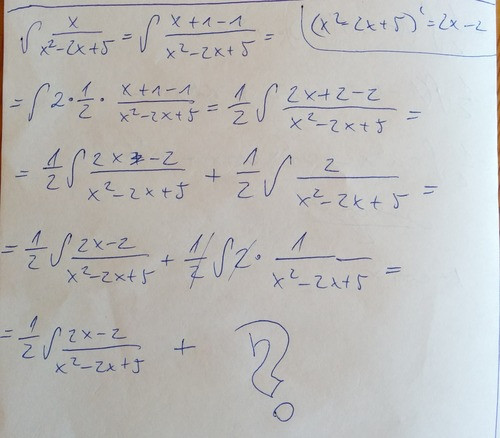 ∫ x/(x²-2x+5) = ∫ (x+1-1)/(x²-2x+5) = (x²-2x+5)' = 2x-2
= ∫ 2·1/2·(x+1-1)/(x²-2x+5) = 1/2 ∫ (2x+2-2)/(x²-2x+5) =
= 1/2 ∫ (2x-2)/(x²-2x+5) + 1/2 ∫ 2/(x²-2x+5) =
= 1/2 ∫ (2x-2)/(x²-2x+5) + 1/2 ∫ 2·1/(x²-2x+5) =
= 1/2 ∫ (2x-2)/(x²-2x+5) + ?